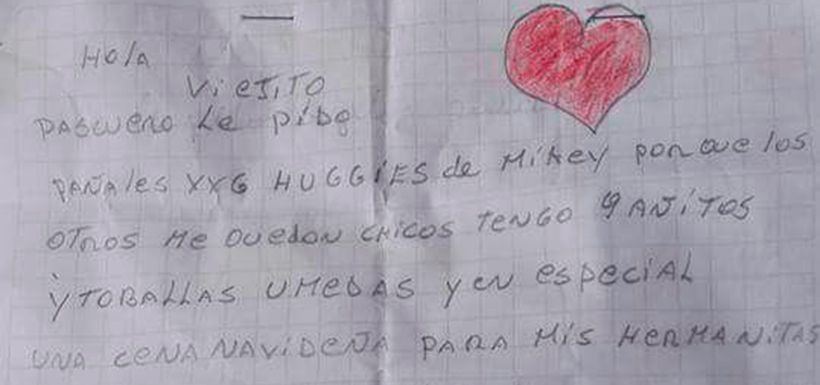 Hola
ViEJiTO
PASCUERO Le pido
PAÑAles XXG HUGGiES de MiKEY porque los
OTROS Me Quedan CHiCOS TENGO 9 AÑiTOS
y TOBALLAS UMEDAS y en especiAL
UNA CENA NAViDEÑA PARA Mis HERMANiTAS